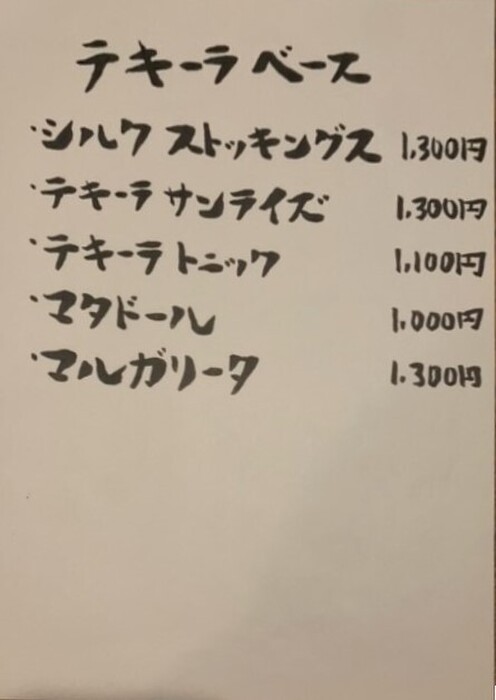 テキーラ ベース
・シルク ストッキングス 1,300円
・テキーラ サンライズ 1,300円
・テキーラ トニック 1,100円
・マタドール 1,000円
・マルガリータ 1,300円